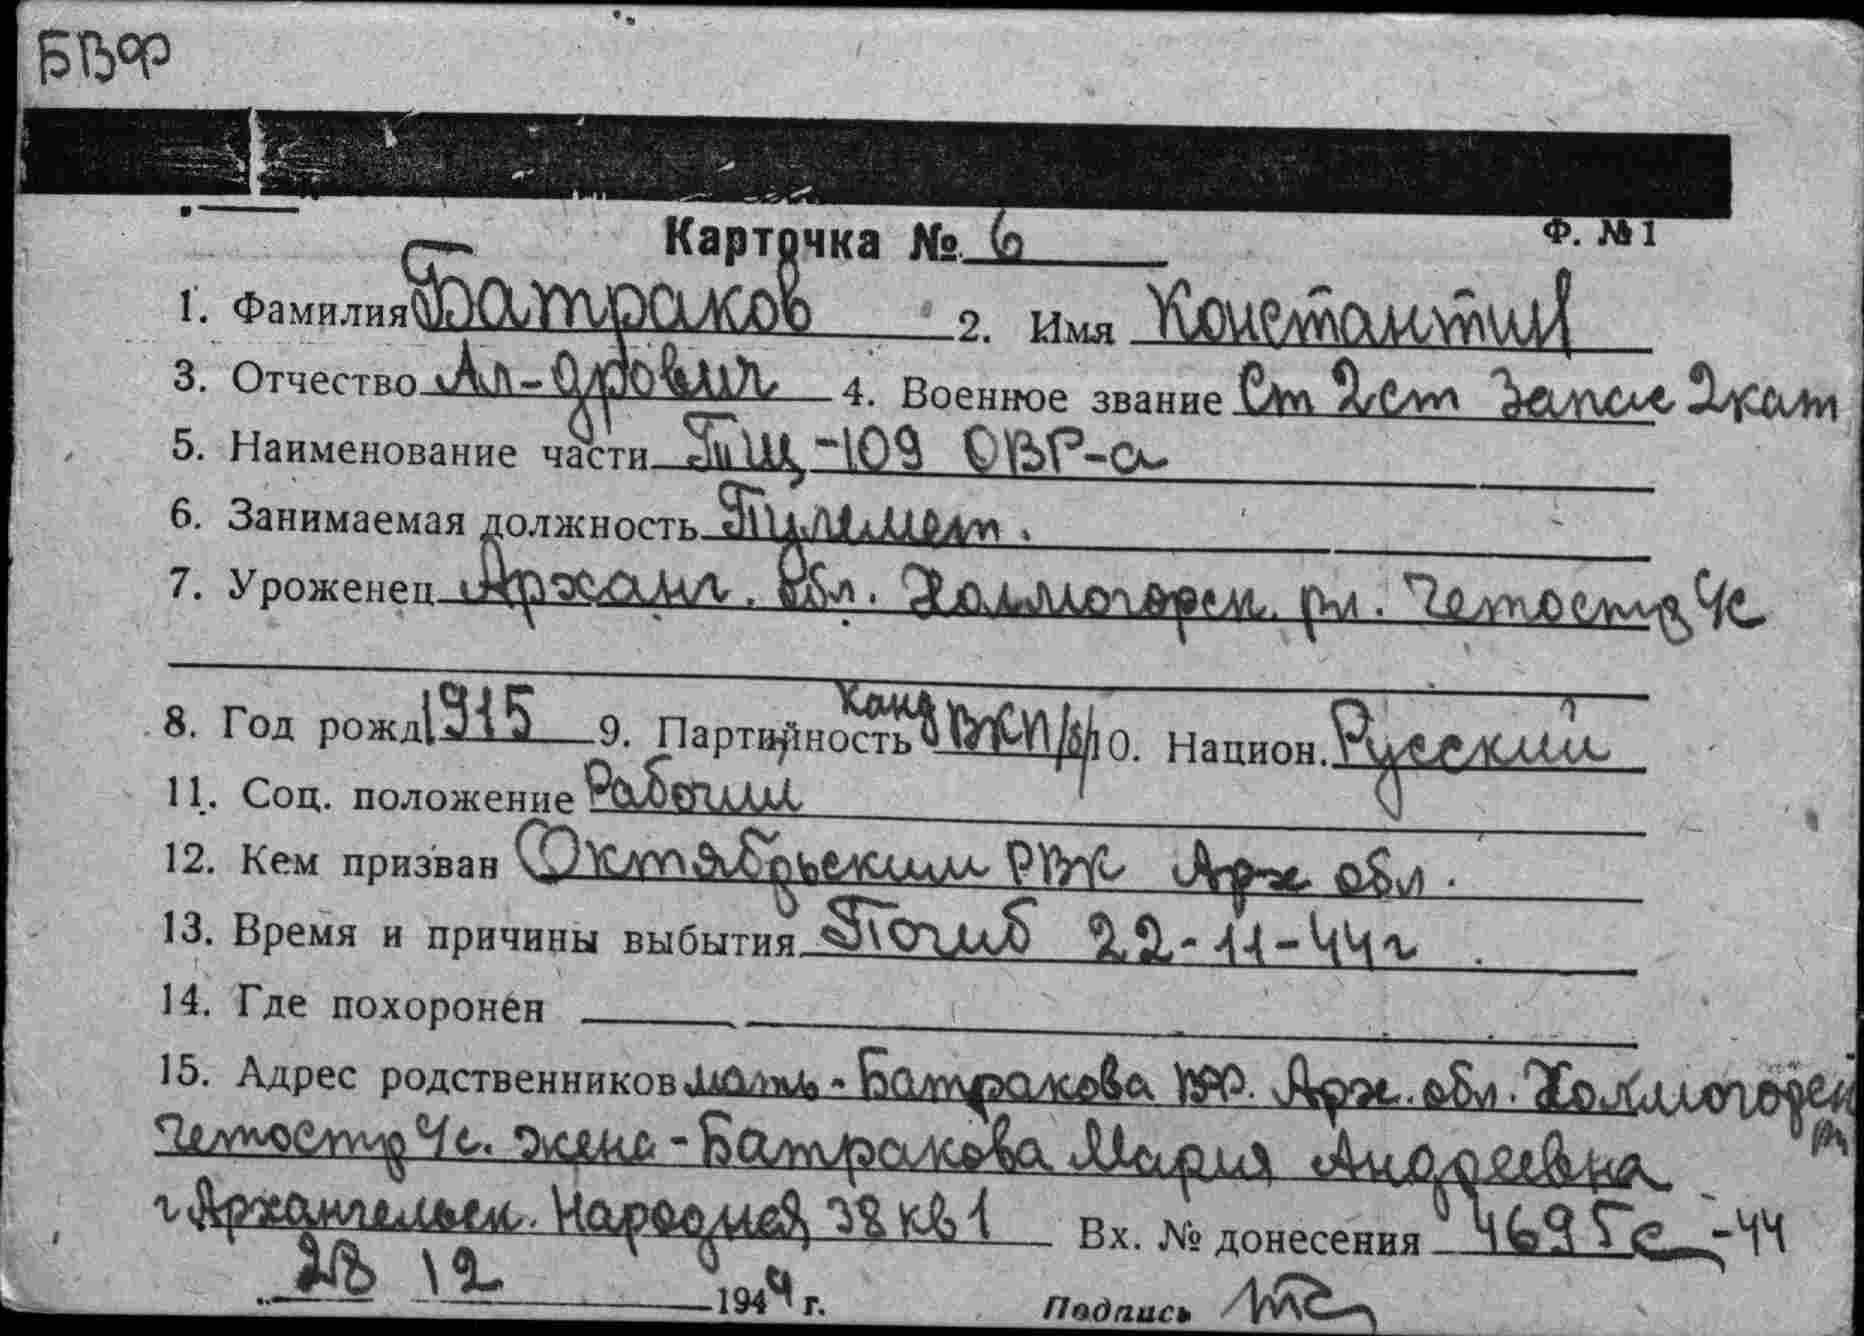 БВФ
Карточка № 6 Ф. № 1
1. Фамилия Батраков 2. Имя Константин
3. Отчество Ал-дрович 4. Военное звание Ст 2 ст запаса 2 кат
5. Наименование части ТЩ-109 ОВР-а
6. Занимаемая должность Пулемет.
7. Уроженец Арханг. обл. Холмогорск. рн. Чемостр ч/с
8. Год рожд 1915 9. Партийность Канд ВКП/б/ 10. Национ. Русский
11. Соц. положение Рабочий
12. Кем призван Октябрьским РВК Арх обл.
13. Время и причины выбытия Погиб 22-11-44г
14. Где похоронен
15. Адрес родственников мать - Батракова Арх. обл. Холмогорск
рн
ч/с. жена - Батракова Мария Андреевна
г Архангельск. Народная 38 кв 1 Вх. № донесения 4695с -44
28 12 1944 г. Подпись